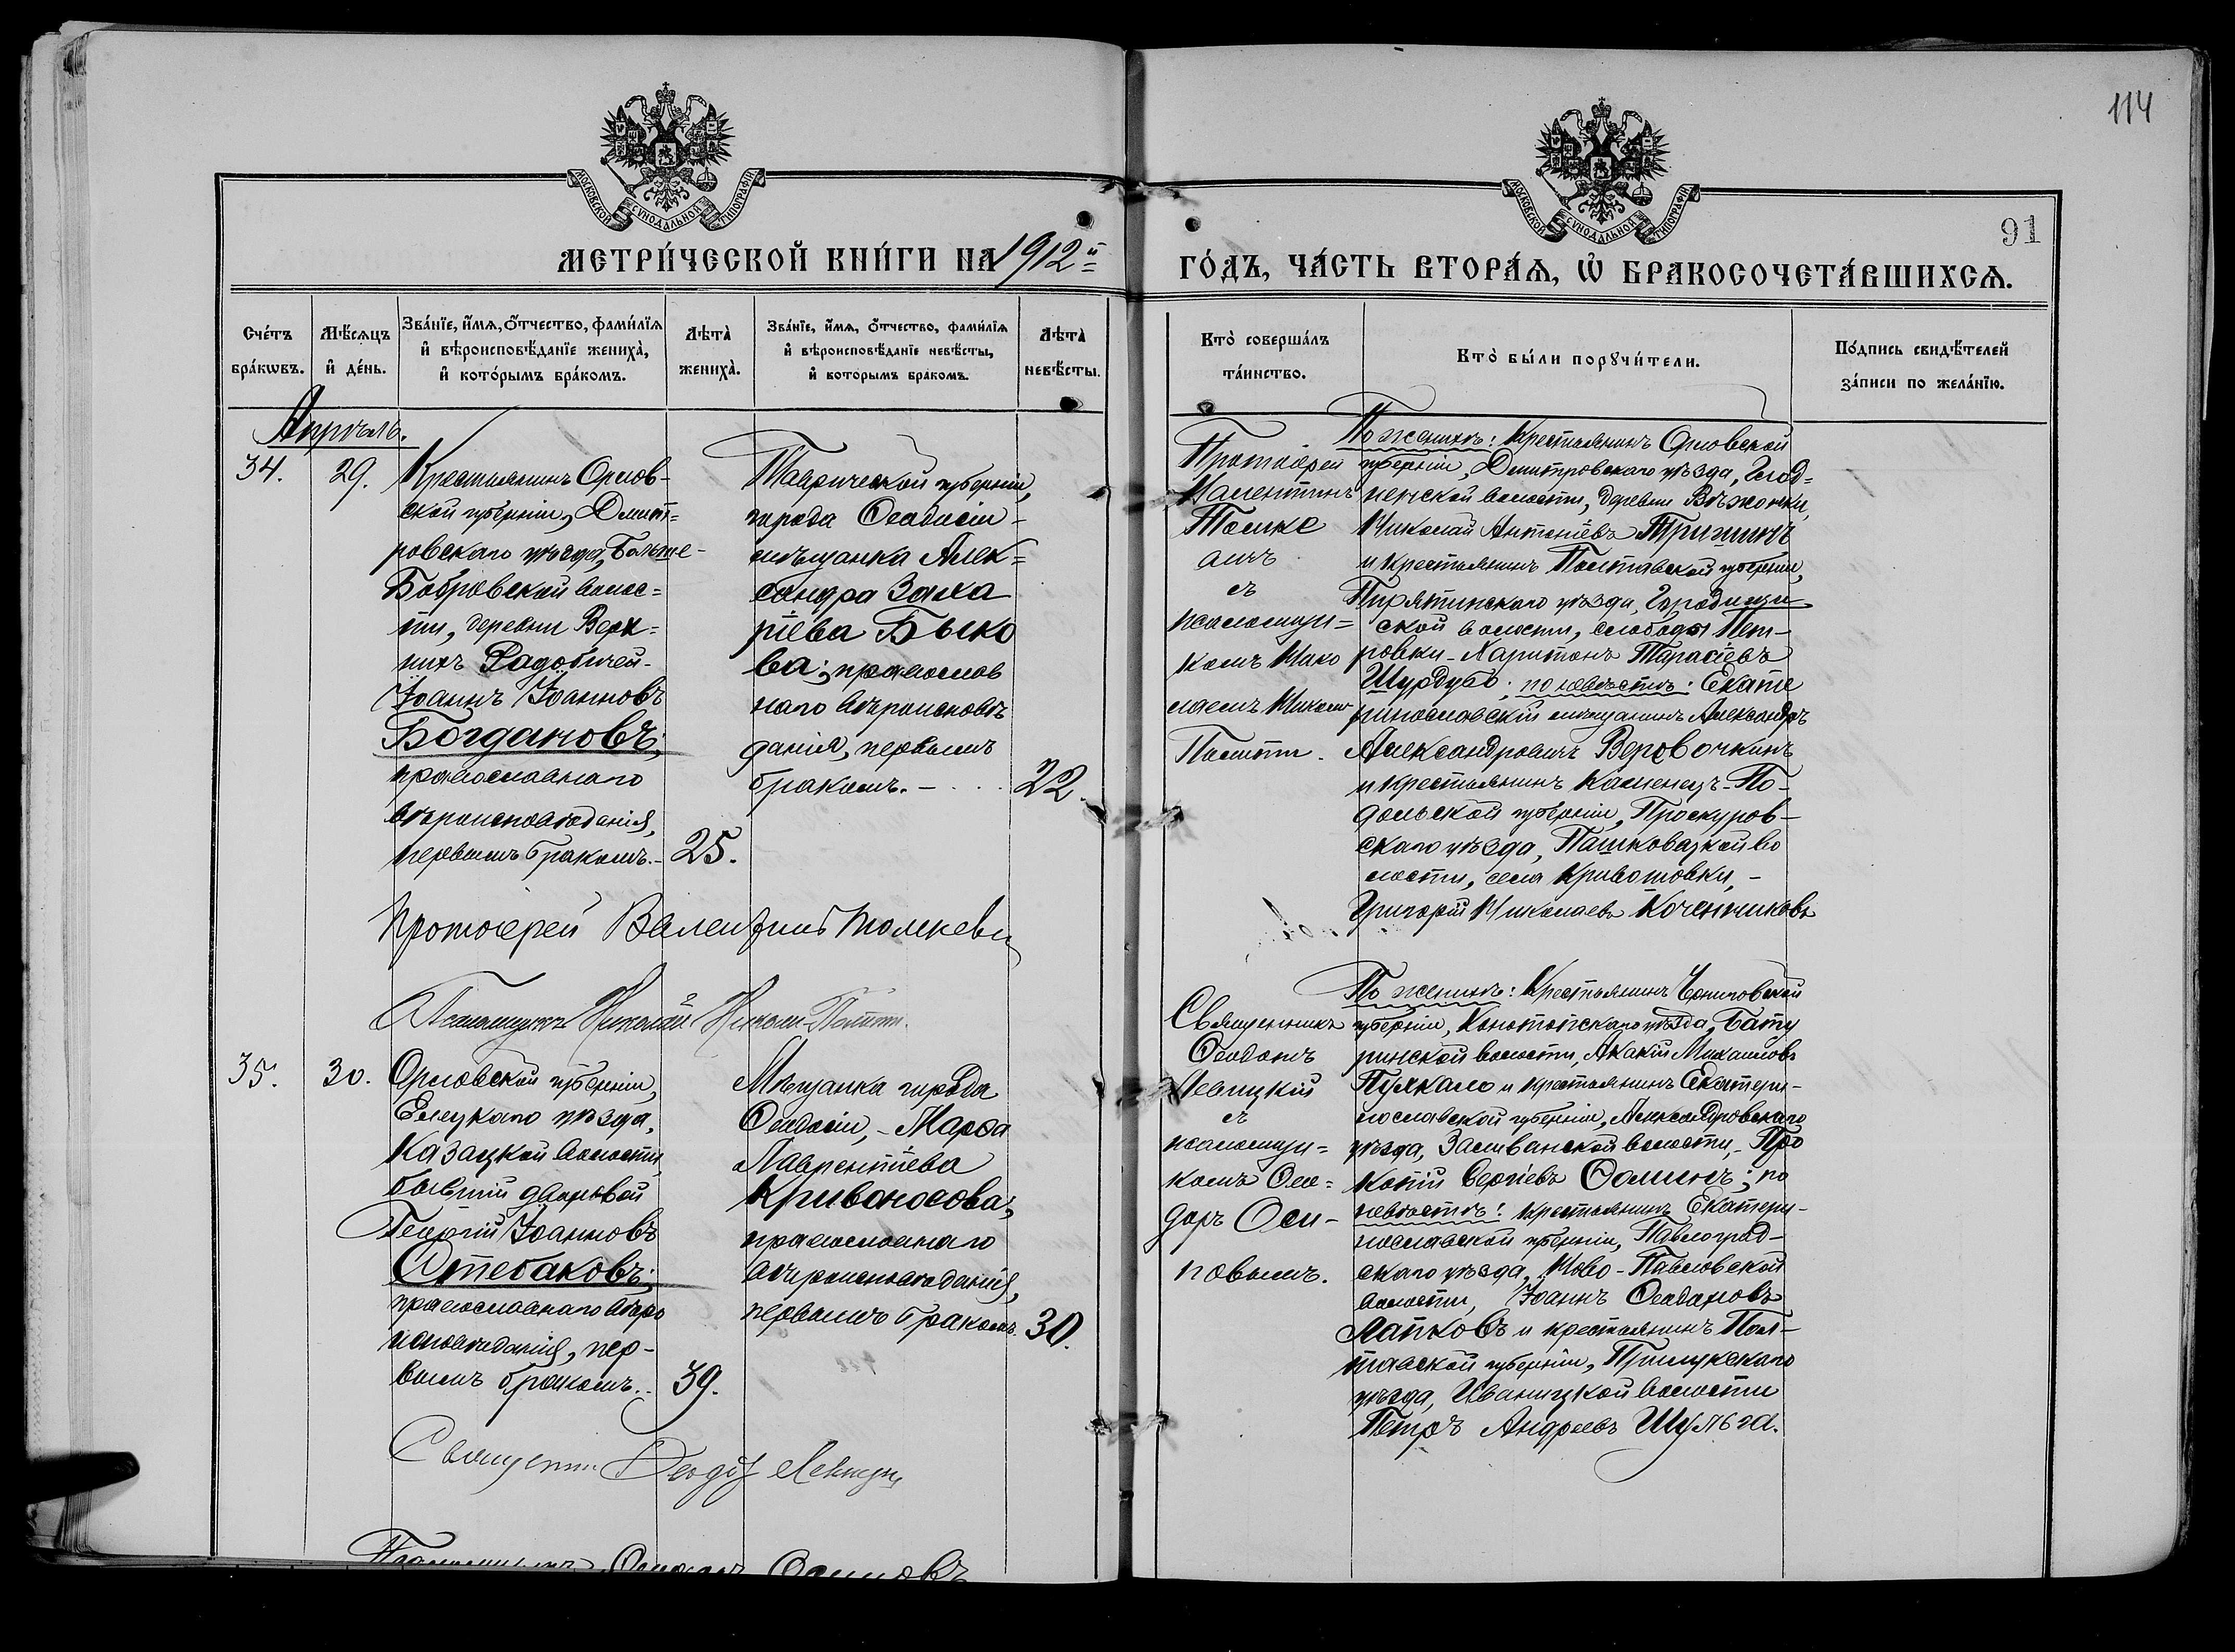 114
91
МОСКОВСКОЙ СѴНОДАЛЬНОЙ ТИПОГРАФІИ
МОСКОВСКОЙ СѴНОДАЛЬНОЙ ТИПОГРАФІИ
МЕТРИ́ЧЕСКОЙ КНИ́ГИ НА 1912й
ГО́ДЪ, ЧА́СТЬ ВТОРА́Ѧ, Ѡ҆ БРАКОСОЧЕТА́ВШИХСѦ.
Сче́тъ
бра́кѡвъ.
Мѣ́сѧцъ
и҆ де́нь.
Зва́нїе, и҆́мѧ, ѻ҆́тчество, фами́лїѧ
и҆ вѣроисповѣ́данїе жениха̀,
и҆ кото́рымъ бра́комъ.
Лѣта̀
жениха̀.
Зва́нїе, и҆́мѧ, ѻ҆́тчество, фами́лїѧ
и҆ вѣроисповѣ́данїе невѣ́сты,
и҆ кото́рымъ бра́комъ.
Лѣта̀
невѣ́сты.
Кто̀ соверша́лъ
та́инство.
Кто̀ бы́ли порꙋчи́тели.
По́дпись свидѣ́телей
за́писи по жела́нїю.
Апрѣль.
34.
29.
Крестьянинъ Орлов-
ской губерніи, Дмит=
ровскаго уѣзда, Больше-
Бобровской волос=
ти, деревни Верх=
нихъ Радобичей-
Іоаннъ Іоанновъ
Богдановъ;
православнаго
вѣроисповѣданія,
первымъ бракомъ.-
25.
Таврической губерніи,
города Ѳеодосіи-
мѣщанка Алек=
сандра Заха
ріева Быко
ва; православ
наго вѣроисповѣ
данія, первымъ
бракомъ.-
22.
Протоіерей
Валентинъ
Толке
вичъ
съ
псаломщи=
комъ Нико
лаемъ
По женихѣ: Крестьянинъ Орловской
губерніи, Дмитровскаго уѣзда, Глод=
ненской волости, деревни Вѣжонки,
Николай Антоніевъ Тришинъ
и крестьянинъ Полтавской губерніи,
Пирятинскаго уѣзда, Городищи
ской волости, слободы Пет-
ровки- Харитонъ Тарасіевъ
Шурдубъ; по невѣстѣ: Екате
ринославскій мѣщанинъ Александръ
Александровичъ Веровочкинъ
и крестьянинъ Каменецъ-По-
дольской губерніи, Проскуров-
скаго уѣзда, Пашковецкой во
лости, села,-
Григорій Николаевъ
Протоіерей Валентинъ Толкевич
Псаломщикъ Николай
35.
30.
Орловской губерніи,
Елецкаго уѣзда,
Казацкой волости,
бывшій дворовой
Георгій Іоанновъ
Стебаковъ;
православнаго вѣро
исповѣданія, пер-
вымъ бракомъ.
39.
Мѣщанка города
Ѳеодосіи,- Марѳа
Лаврентіева
Кривоносова;
православнаго
вѣроисповѣданія,
первымъ бракомъ.
30.
Священникъ
Ѳеодотъ
Левицкій
съ
псаломщи=
комъ Ѳео=
доръ Оси-
повымъ.
По женихѣ: Крестьянинъ Черниговской
губерніи, Конотопскаго уѣзда, Бату
ринской волости, Акакій Михаиловъ
Пужкало и крестьянинъ Екатери-
нославской губерніи, Александровскаго
уѣзда, Заливанской волости,- Про
копій Сергіевъ Ѳоминъ; по
невѣстѣ: крестьянинъ Екатери-
нославской губерніи, Павлоград-
скаго уѣзда, Ново-Павловской
волости, Іоаннъ Ѳеодоровъ
Лапковъ и крестьянинъ Пол-
тавской губерніи, Прилукскаго
уѣзда, Иваницкой волости
Петръ Андреевъ Шульга.
Священник Левицк
Псаломщикъ Осиповъ